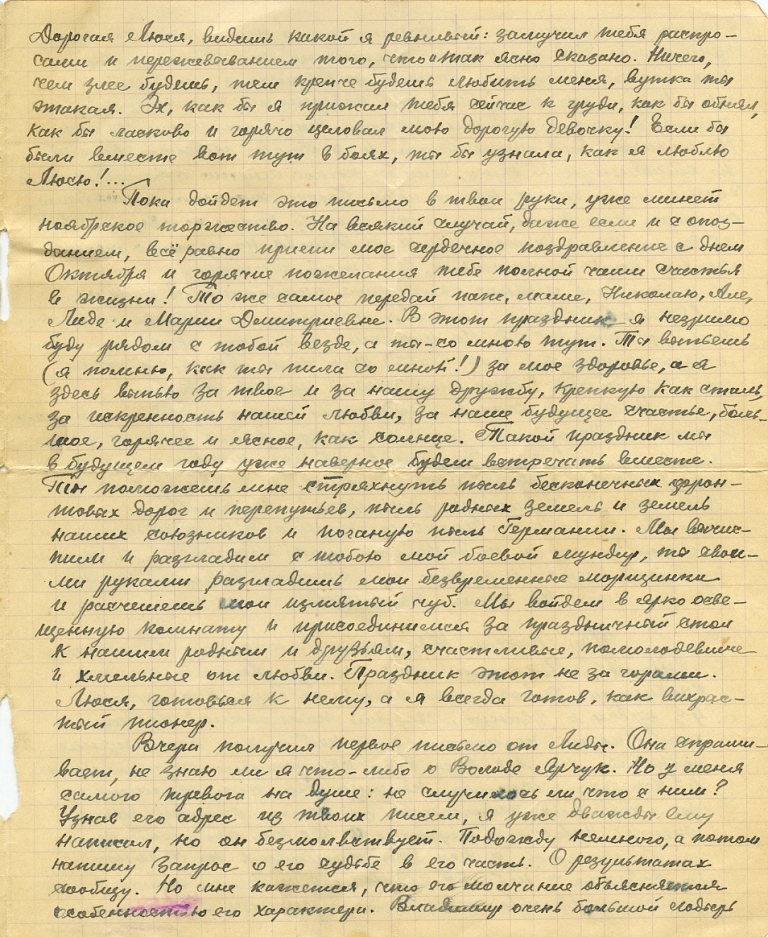 Дорогая Люся, видишь какой я ревнивый: замучил тебя распро-
сами и пережевыванием того, что и так ясно сказано. Ничего,
чем злее будешь, тем крепче будешь любить меня, вутка ты
этакая. Эх, как бы я прижал тебя сейчас к груди, как бы обнял,
как бы ласково и горячо целовал мою дорогую девочку! Если бы
были вместе вот тут в боях, ты бы узнала, как я люблю
Люсю!...
Пока дойдет это письмо в твои руки, уже минет
ноябрьское торжество. На всякий случай, даже если и с опоз-
данием, всё равно прими мое сердечное поздравление с днем
Октября и горячие пожелания тебе полной чаши счастья
в жизни! То же самое передай папе, маме, Николаю, Але,
Лиде и Марии Дмитриевне. В этот праздник я незримо
буду рядом с тобой везде, а ты-со мною тут. Ты выпьешь
(я помню, как ты пила со мной!) за мое здоровье, а я
здесь выпью за твое и за нашу дружбу, крепкую как сталь,
за искренность нашей любви, за наше будущее счастье, боль-
шое, горячее и ясное, как солнце. Такой праздник мы
в будущем году уже наверное будем встречать вместе.
Ты поможешь мне стряхнуть пыль бесконечных фрон-
товых дорог и перепутьев, пыль родных земель и земель
наших союзников и поганую пыль Германии. Мы вычис-
тим и разгладим с тобою мой боевой мундир, ты свои-
ми руками разгладишь мои безвременные морщинки
и расчешешь мой измятый чуб. Мы войдем в ярко осве-
щенную комнату и присоединимся за праздничный стол
к нашим родным и друзьям, счастливые, помолодевшие
и хмельные от любви. Праздник этот не за горами.
Люся, готовься к нему, а я всегда готов, как вихрас-
тый пионер.
Вчера получил первое письмо от Лиды. Она спраши-
вает, не знаю ли я что-либо о Володе Ярчук. Но у меня
самого тревога на душе: не случилось ли что с ним?
Узнав его адрес из твоих писем, я уже дважды ему
написал, но он безмолвствует. Подожду немного, а потом
напишу запрос о его судьбе в его часть. О результатах
сообщу. Но мне кажется, что его молчание объясняется
особенностью его характера. Владимир очень большой лодырь